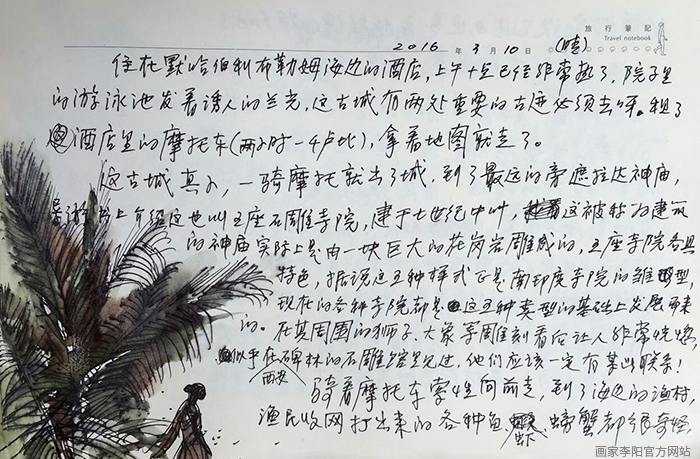 旅行筆記
Travel notebook
2016 年 3 月 10 日 (晴)
住在默哈伯利布勒姆海边的酒店，上午十点已经非常热了，院子里
的游泳池发着诱人的兰光，这古城有两处重要的古迹必须去呀。租了
酒店里的摩托车(两小时一4卢比)，拿着地图就走了。
这古城真小，一骑摩托就出了城，到了最远的旁遮拉达神庙，
导游书上介绍这也叫五座石雕寺院，建于七世纪中叶，这被称为建筑
的神庙实际上是由一块巨大的花岗岩雕成的，五座寺院各具
特色，据说这五种样式正是南印度寺院的雏型
现在的各种寺院都是这五种类型的基础上发展而来
的。在其周围的狮子、大象等雕刻看后让人非常恍惚，
似乎在西安碑林的石雕馆里见过，他们应该一定有某些联系！
骑着摩托车向前走，到了海边的渔村，
渔民收网打出来的各种鱼、虾、螃蟹都很奇怪，
画家李阳官方网站